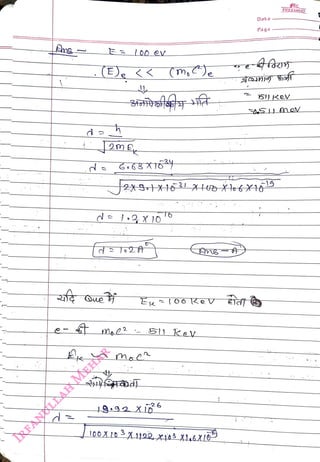 Date
Page
Ans – E = 100 ev
(E)e << (m₀c²)e ∵ e⁻ की विराम
⇓ द्रव्यमान ऊर्जा
= 511 KeV
अनापेक्षिकीय गति
.511 MeV
λ = h / √2mEₖ
λ = 6.63 × 10⁻³⁴ / √2×9.1×10⁻³¹ × 100 × 1.6×10⁻¹⁹
λ = 1.2 × 10⁻¹⁰
λ = 1.2 A° Ans – A
यदि Que में Eₖ = 100 KeV होता
e⁻ की m₀c² = 511 KeV
Eₖ ~ m₀c²
⇓
λ = 19.92 × 10⁻²⁶ / √100×10³×1122×10³×1.6×10⁻¹⁹
IRFANULLAH MEHER